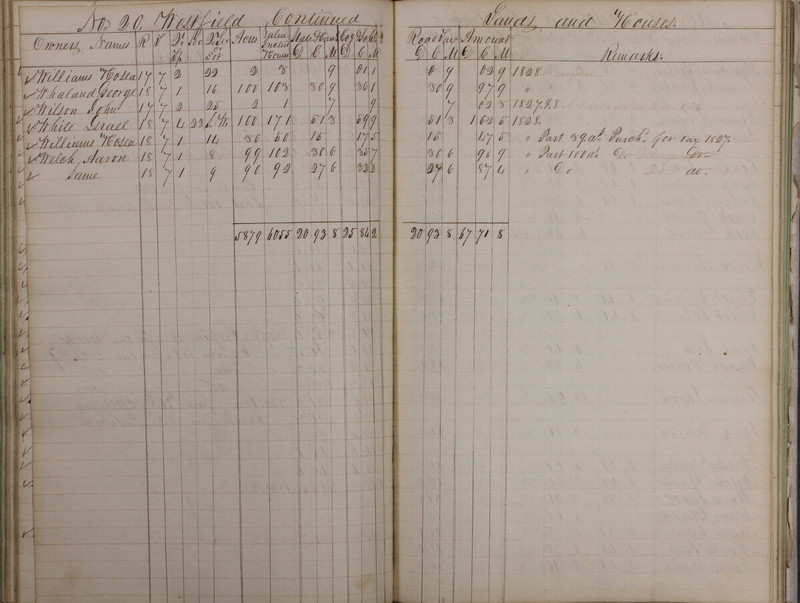 No 20 Westfield Continued Lands and Houses.
Owners Names R T Acres Value Road Tax Amount Remarks.
D C M D C M D C M D C M
Williams Hosea 17 7 2 22 2 3 9 01 1 9 02 9 1828
Whaland George 18 7 1 16 100 103 30 9 36 1 30 9 97 9 "
Wilson John 17 7 2 25 2 1 7 9 7 02 3 1827 & 8
White Israel 18 7 4 23 100 171 51 3 59 9 51 3 1 62 5 1828
Williams Hosea 18 7 1 14 36 50 15 17 5 15 47 5 " Part 39 as. Purchd for tax 1827.
Welch, Aaron 18 7 1 8 99 102 30 6 35 7 30 6 96 9 " Part 100 as. Do Do
Same 18 7 1 9 90 92 27 6 32 2 27 6 87 4 " Do do.
5879 6055 20 93 8 25 84 2 20 93 8 67 71 8